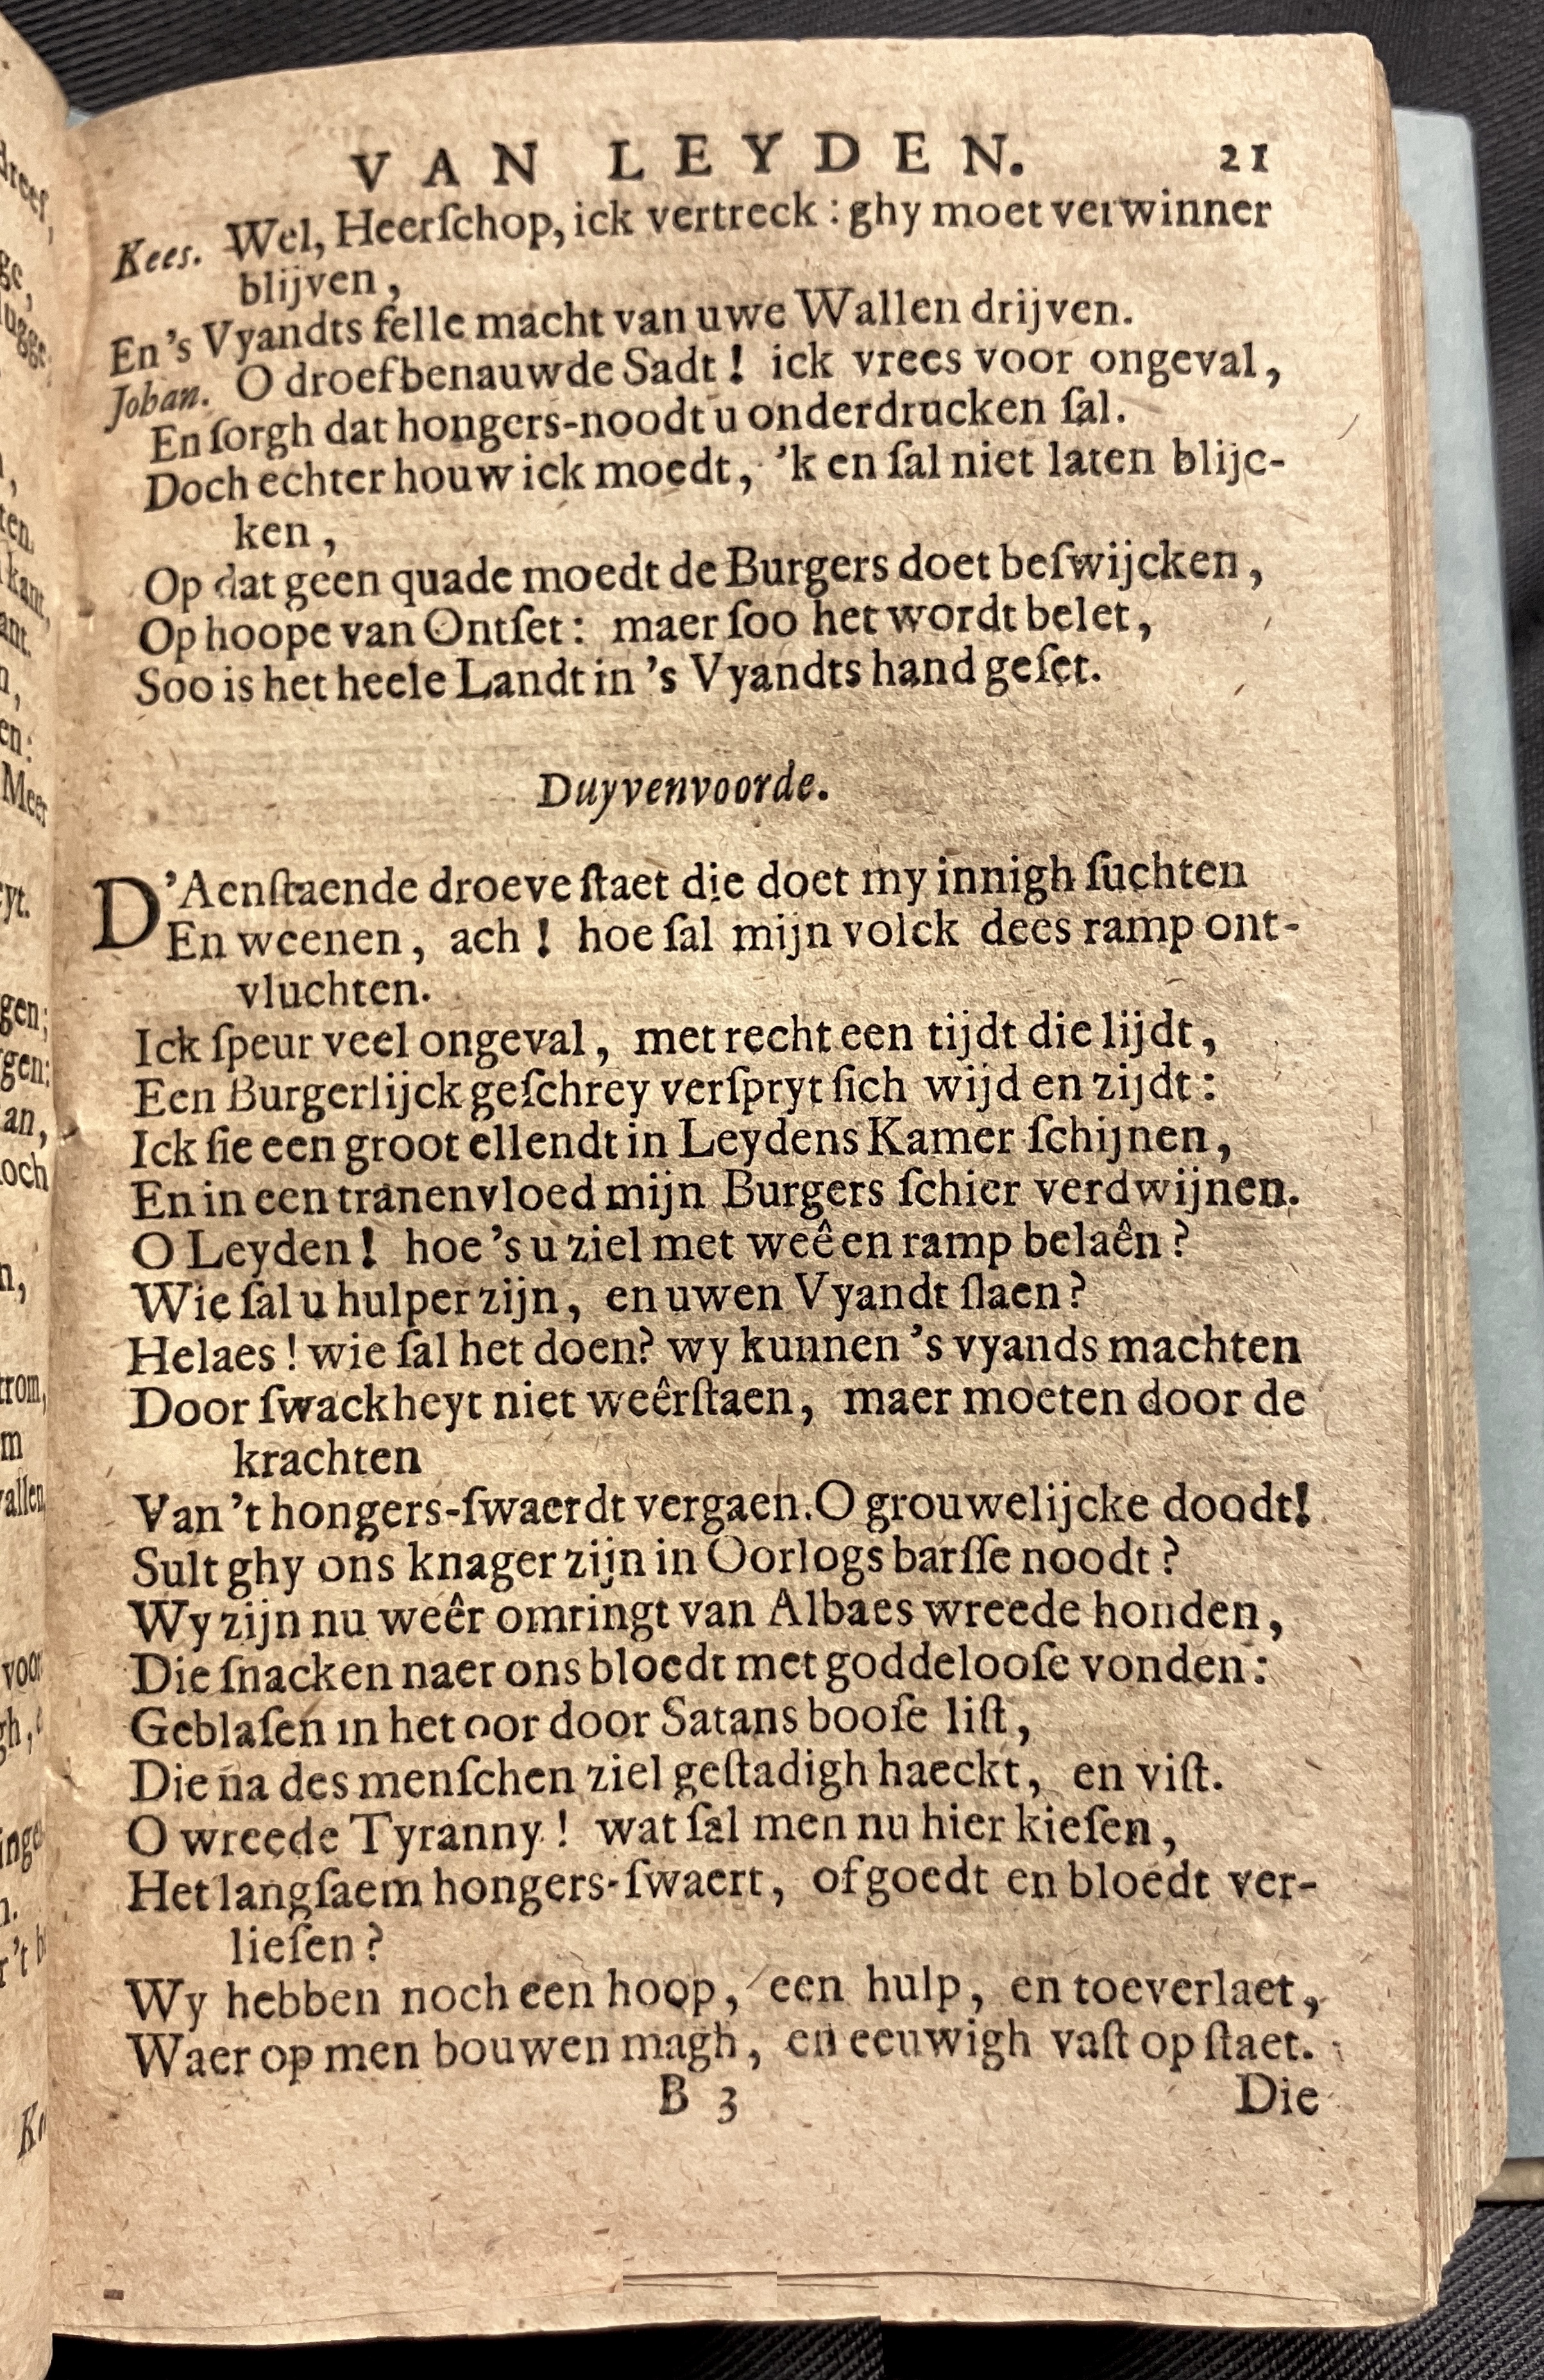 VAN LEYDEN. 21
Kees. Wel, Heerſchop, ick vertreck : ghy moet verwinner
blijven,
En 's Vyandts felle macht van uwe Wallen drijven.
Johan. O droef benauwde Sadt! ick vrees voor ongeval,
En ſorgh dat hongers-noodt u onderdrucken ſal.
Doch echter houw ick moedt, 'k en ſal niet laten blijc-
ken,
Op dat geen quade moedt de Burgers doet beſwijcken,
Op hoope van Ontſet: maer ſoo het wordt belet,
Soo is het heele Landt in 's Vyandts hand geſet.
Duyvenvoorde.
D'Aenſtaende droeve ſtaet die doet my innigh ſuchten
En weenen, ach! hoe ſal mijn volck dees ramp ont-
vluchten.
Ick ſpeur veel ongeval, met recht een tijdt die lijdt,
Een Burgerlijck geſchrey verſpryt ſich wijd en zijdt:
Ick ſie een groot ellendt in Leydens Kamer ſchijnen,
En in een tranenvloed mijn Burgers ſchier verdwijnen.
O Leyden! hoe 's u ziel met weê en ramp belaên?
Wie ſal u hulper zijn, en uwen Vyandt ſlaen?
Helaes! wie ſal het doen? wy kunnen 's vyands machten
Door ſwackheyt niet weêrſtaen, maer moeten door de
krachten
Van 't hongers-ſwaerdt vergaen. O grouwelijcke doodt!
Sult ghy ons knager zijn in Oorlogs barſſe noodt?
Wy zijn nu weêr omringt van Albaes wreede honden,
Die ſnacken naer ons bloedt met goddelooſe vonden:
Geblaſen in het oor door Satans booſe liſt,
Die na des menſchen ziel geſtadigh haeckt, en viſt.
O wreede Tyranny! wat ſal men nu hier kieſen,
Het langſaem hongers-ſwaert, of goedt en bloedt ver-
lieſen?
Wy hebben noch een hoop, een hulp, en toeverlaet,
Waer op men bouwen magh, en eeuwigh vaſt op ſtaet.
B 3 Die